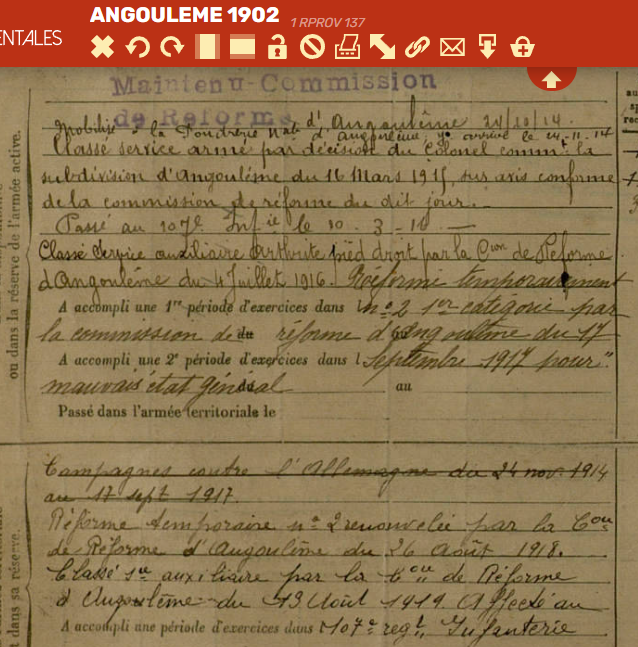 ENTALES
ANGOULEME 1902 1 RPROV 137
Maintenu-Commission
de Reforme d'Angoulême 24/10/14.
Mobilisé à la Poudrerie Nale d'Angoulême y arrivé le 24-11-14
Classé service armé par décision du Colonel commt la
subdivision d'Angoulême du 16 Mars 1915, sur avis conforme
de la commission de réforme du dit jour.
Passé au 107e Infie le 10-3-16
Classé Service auxiliaire arthrite pied droit par la Con de Réforme
d'Angoulême du 4 Juillet 1916. Réformé temporairement
A accompli une 1re période d'exercices dans l no 2 1re catégorie par
la commission de du réforme d'Angoulême du 17
A accompli une 2e période d'exercices dans l Septembre 1917 pour "
mauvais état général au
Passé dans l'armée territoriale le
Campagnes contre l'Allemagne du 24 nov 1914
au 17 sept 1917.
Réforme temporaire no 2 renouvelée par la Con
de Réforme d'Angoulême du 26 Août 1918.
Classé sce auxiliaire par la Con de Réforme
d'Angoulême du 13 Août 1919 Affecté au
A accompli une période d'exercices dans 107e regt Infanterie
ou dans la réserve de l'armée active.
dans sa réserve.
au